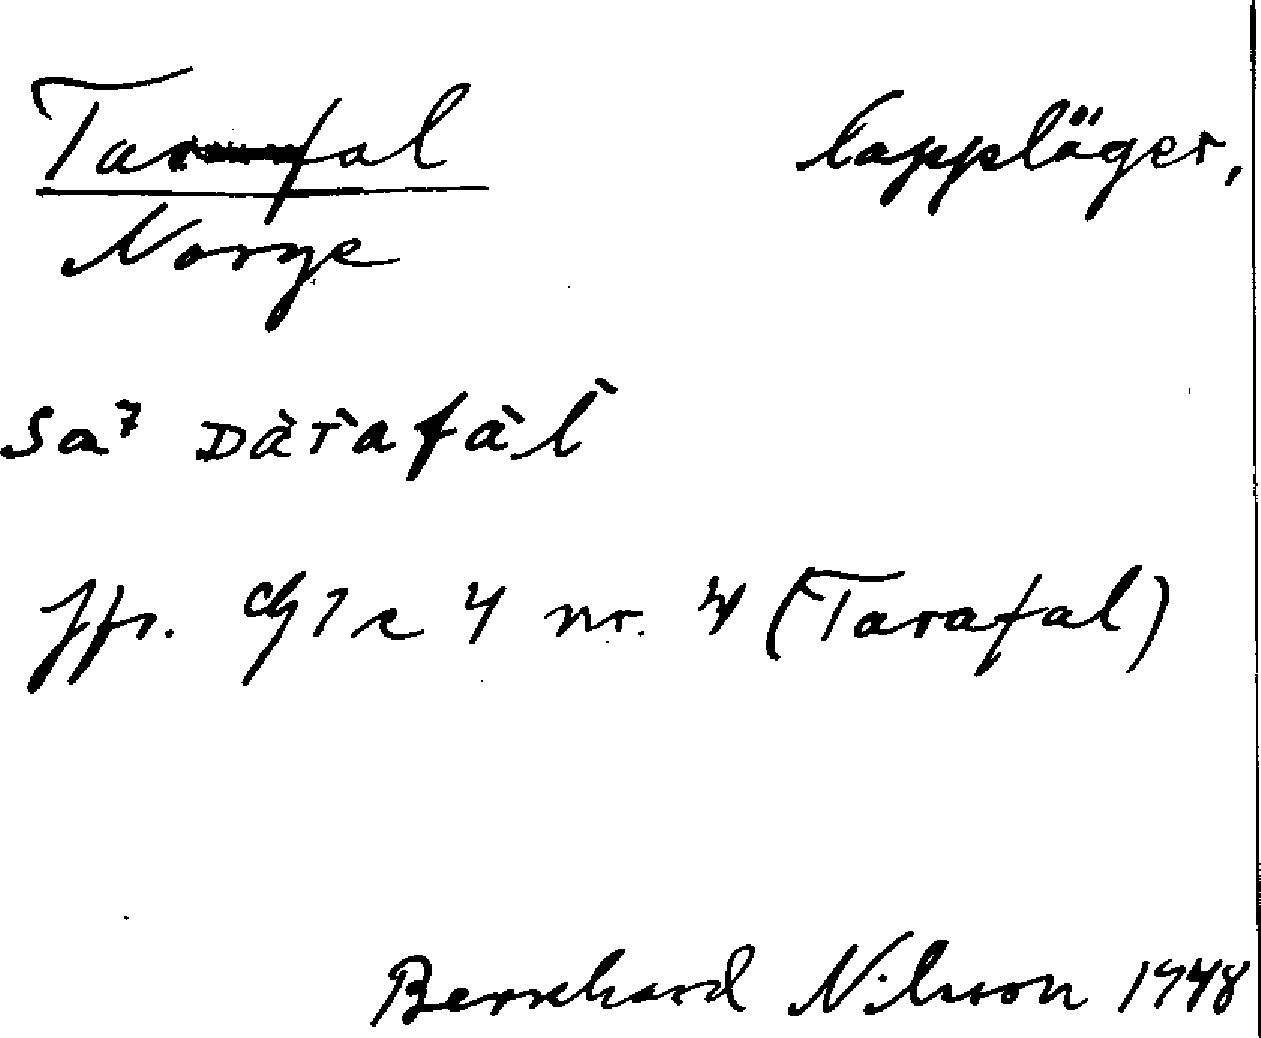 Tarafal lappläger,
Norge
Sa⁷ DàTàfàl̀
Jfr. 4 nr. 4 (Tarafal)
Bernhard Nilsson 1948